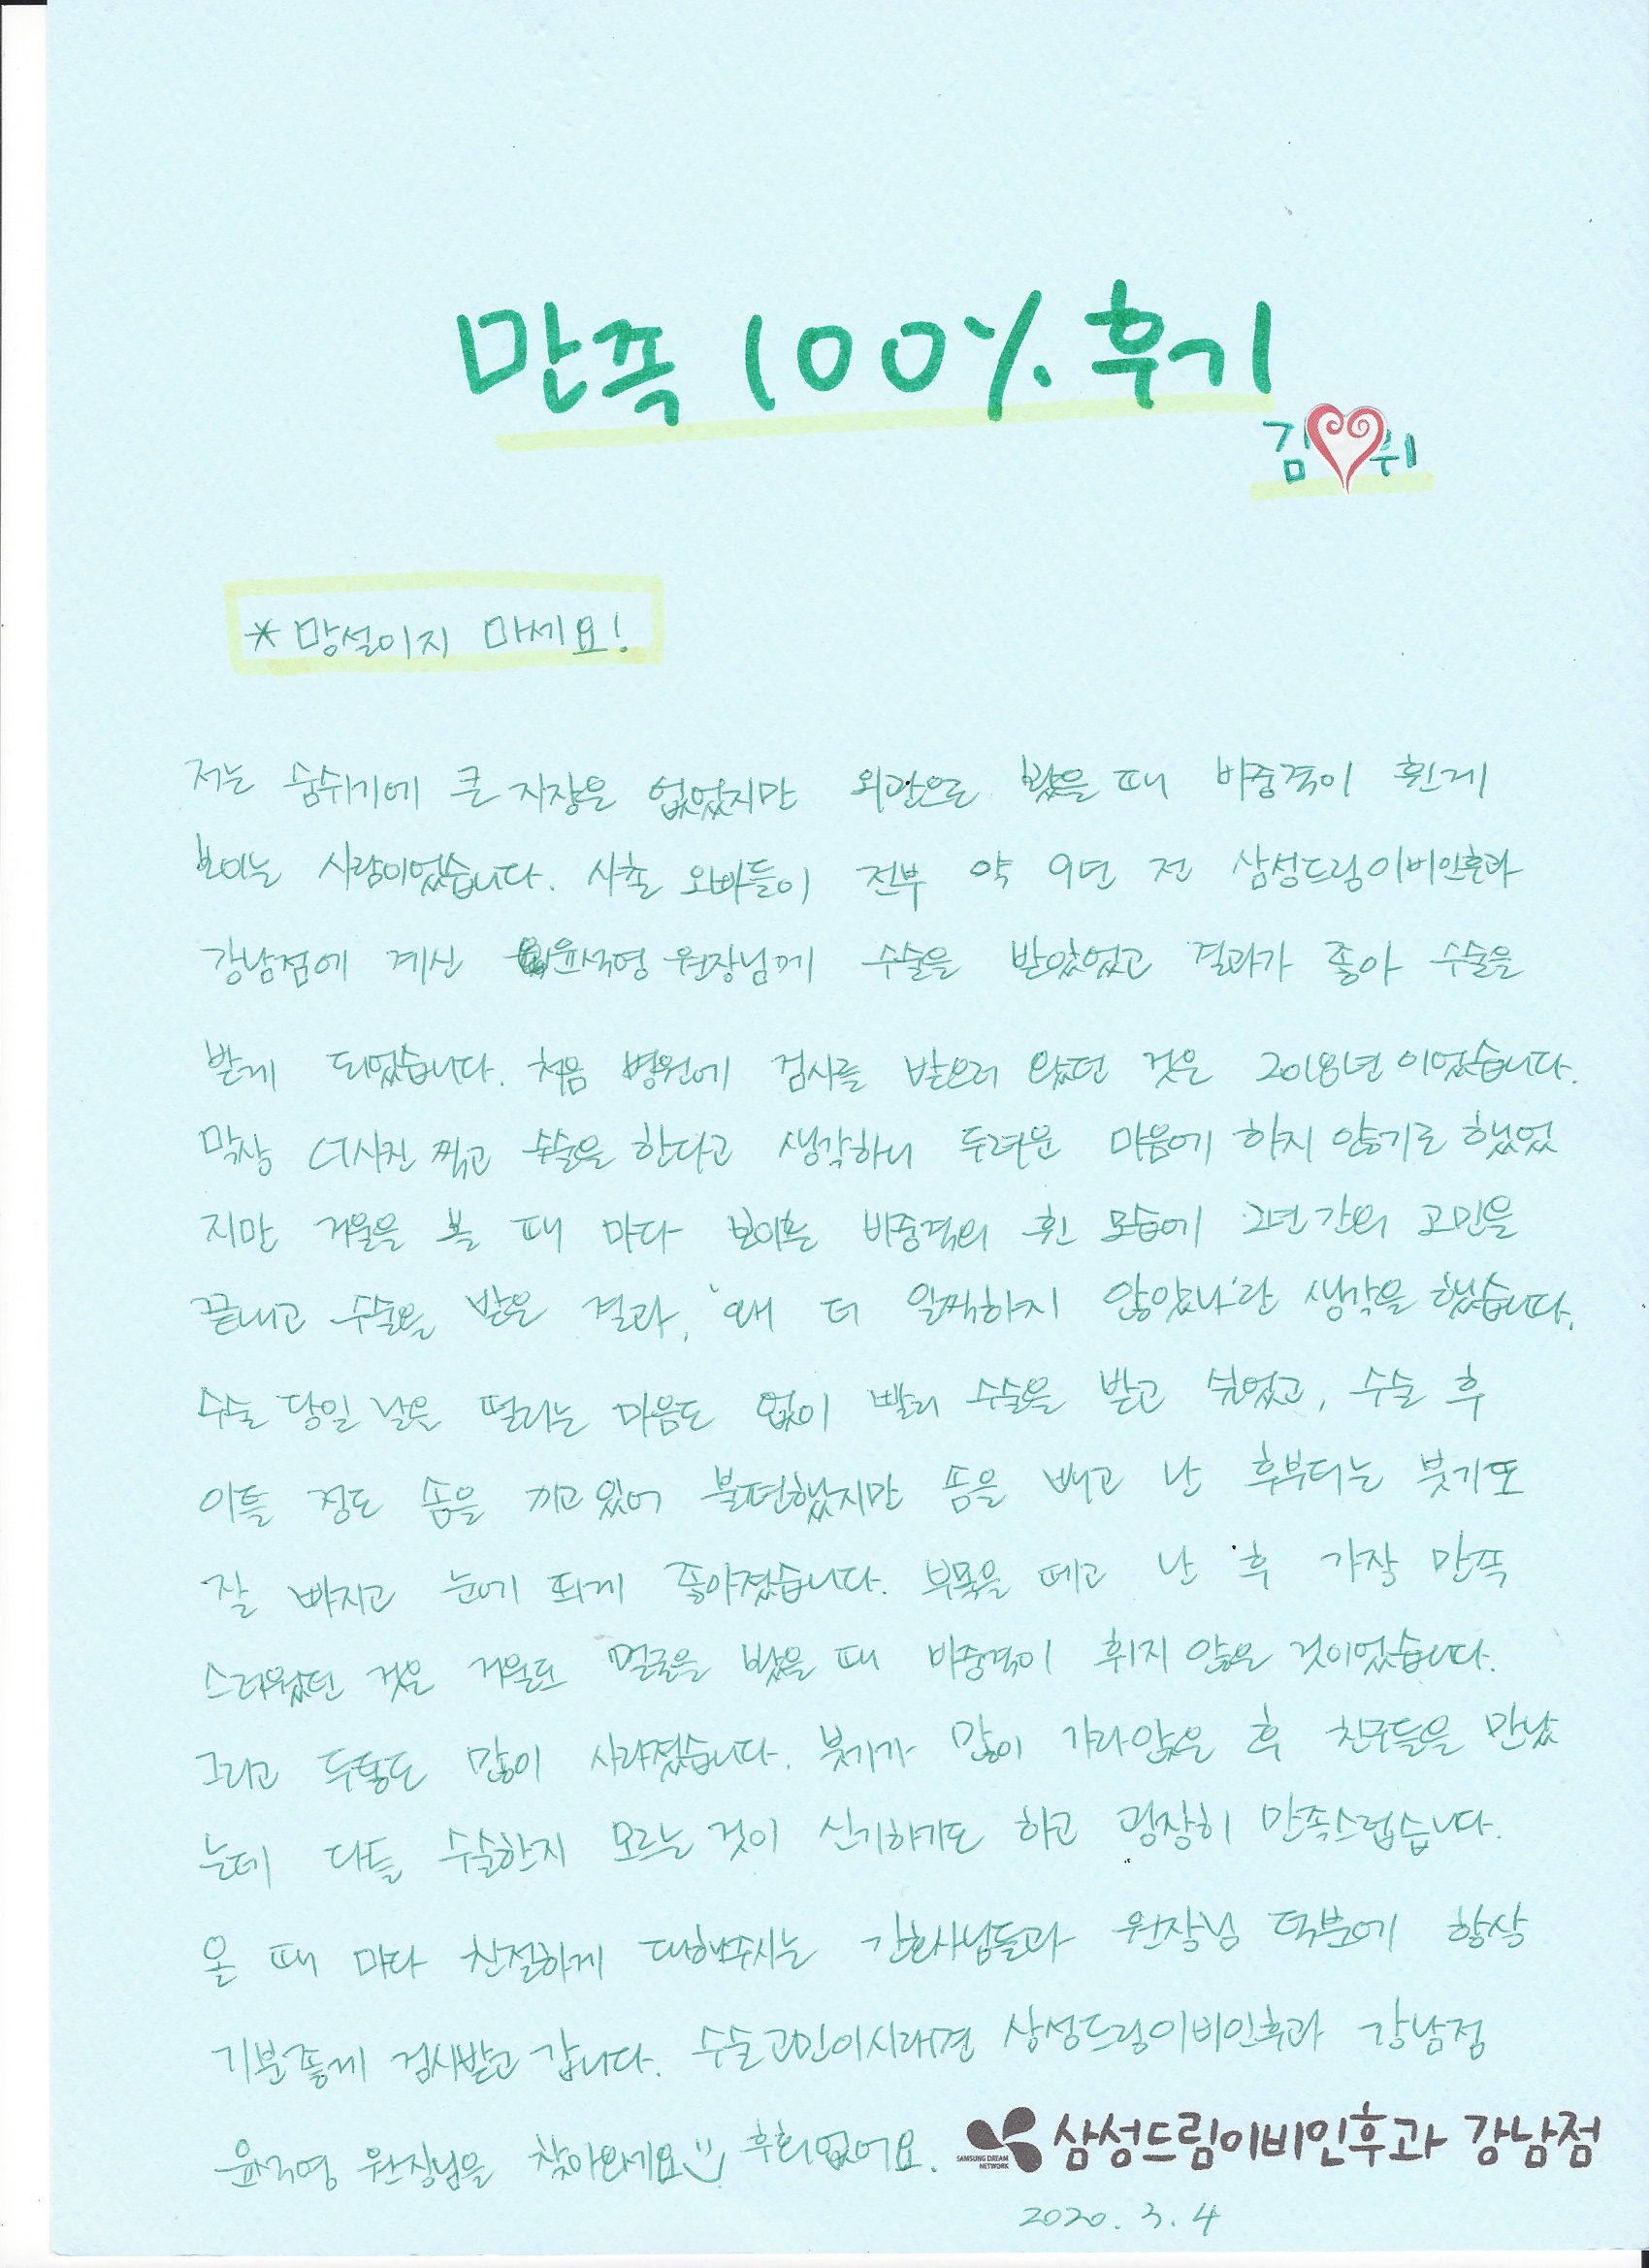 만족 100% 후기
김 휘
* 망설이지 마세요!
저는 숨쉬기에 큰 지장은 없었지만 외관으로 봤을 때 비중격이 휜게
보이는 사람이었습니다. 사촌 오빠들이 전부 약 9년 전 삼성드림이비인후과
강남점에 계신 윤석영 원장님께 수술을 받았었고 결과가 좋아 수술을
받게 되었습니다. 처음 병원에 검사를 받으러 왔던 것은 2018년 이었습니다.
막상 CT사진 찍고 수술을 한다고 생각하니 두려운 마음에 하지 않기로 했었
지만 거울을 볼 때 마다 보이는 비중격의 휜 모습에 2년 간의 고민을
끝내고 수술을 받은 결과, '왜 더 일찍하지 않았나'란 생각을 했습니다.
수술 당일 날은 떨리는 마음도 없이 빨리 수술을 받고 싶었고, 수술 후
이틀 정도 솜을 끼고 있어 불편했지만 솜을 빼고 난 후부터는 붓기도
잘 빠지고 눈에 띄게 좋아졌습니다. 부목을 떼고 난 후 가장 만족
스러웠던 것은 거울로 얼굴을 봤을 때 비중격이 휘지 않은 것이었습니다.
그리고 두통도 많이 사라졌습니다. 붓기가 많이 가라앉은 후 친구들을 만났
는데 다들 수술한지 모르는 것이 신기하기도 하고 굉장히 만족스럽습니다.
올 때 마다 친절하게 대해주시는 간호사님들과 원장님 덕분에 항상
기분좋게 검사받고 갑니다. 수술고민이시라면 삼성드림이비인후과 강남점
윤석영 원장님을 찾아오세요 후회없어요.
SAMSUNG DREAM NETWORK 삼성드림이비인후과 강남점
2020. 3. 4